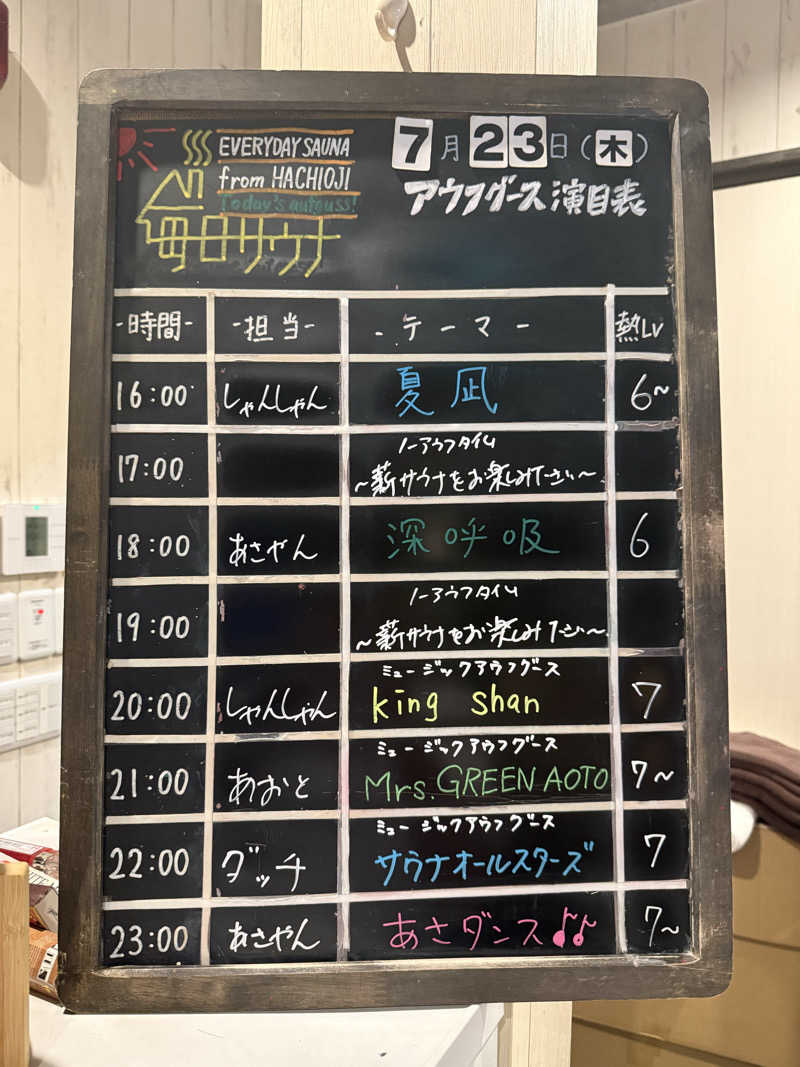 EVERYDAY SAUNA
from HACHIOJI
Today's aufguss!
毎日サウナ
7月23日(木)
アウフグース演目表
-時間- -担当- -テーマ- 熱LV
16:00 しゃんしゃん 夏凪 6~
17:00 ノーアウフタイム
~薪サウナをお楽しみ下さい~
18:00 あさやん 深呼吸 6
19:00 ノーアウフタイム
~薪サウナをお楽しみ下さい~
ミュージックアウフグース
20:00 しゃんしゃん king shan 7
ミュージックアウフグース
21:00 あおと Mrs. GREEN AOTO 7~
ミュージックアウフグース
22:00 ダッチ サウナオールスターズ 7
23:00 あさやん あさダンス♫♪ 7~